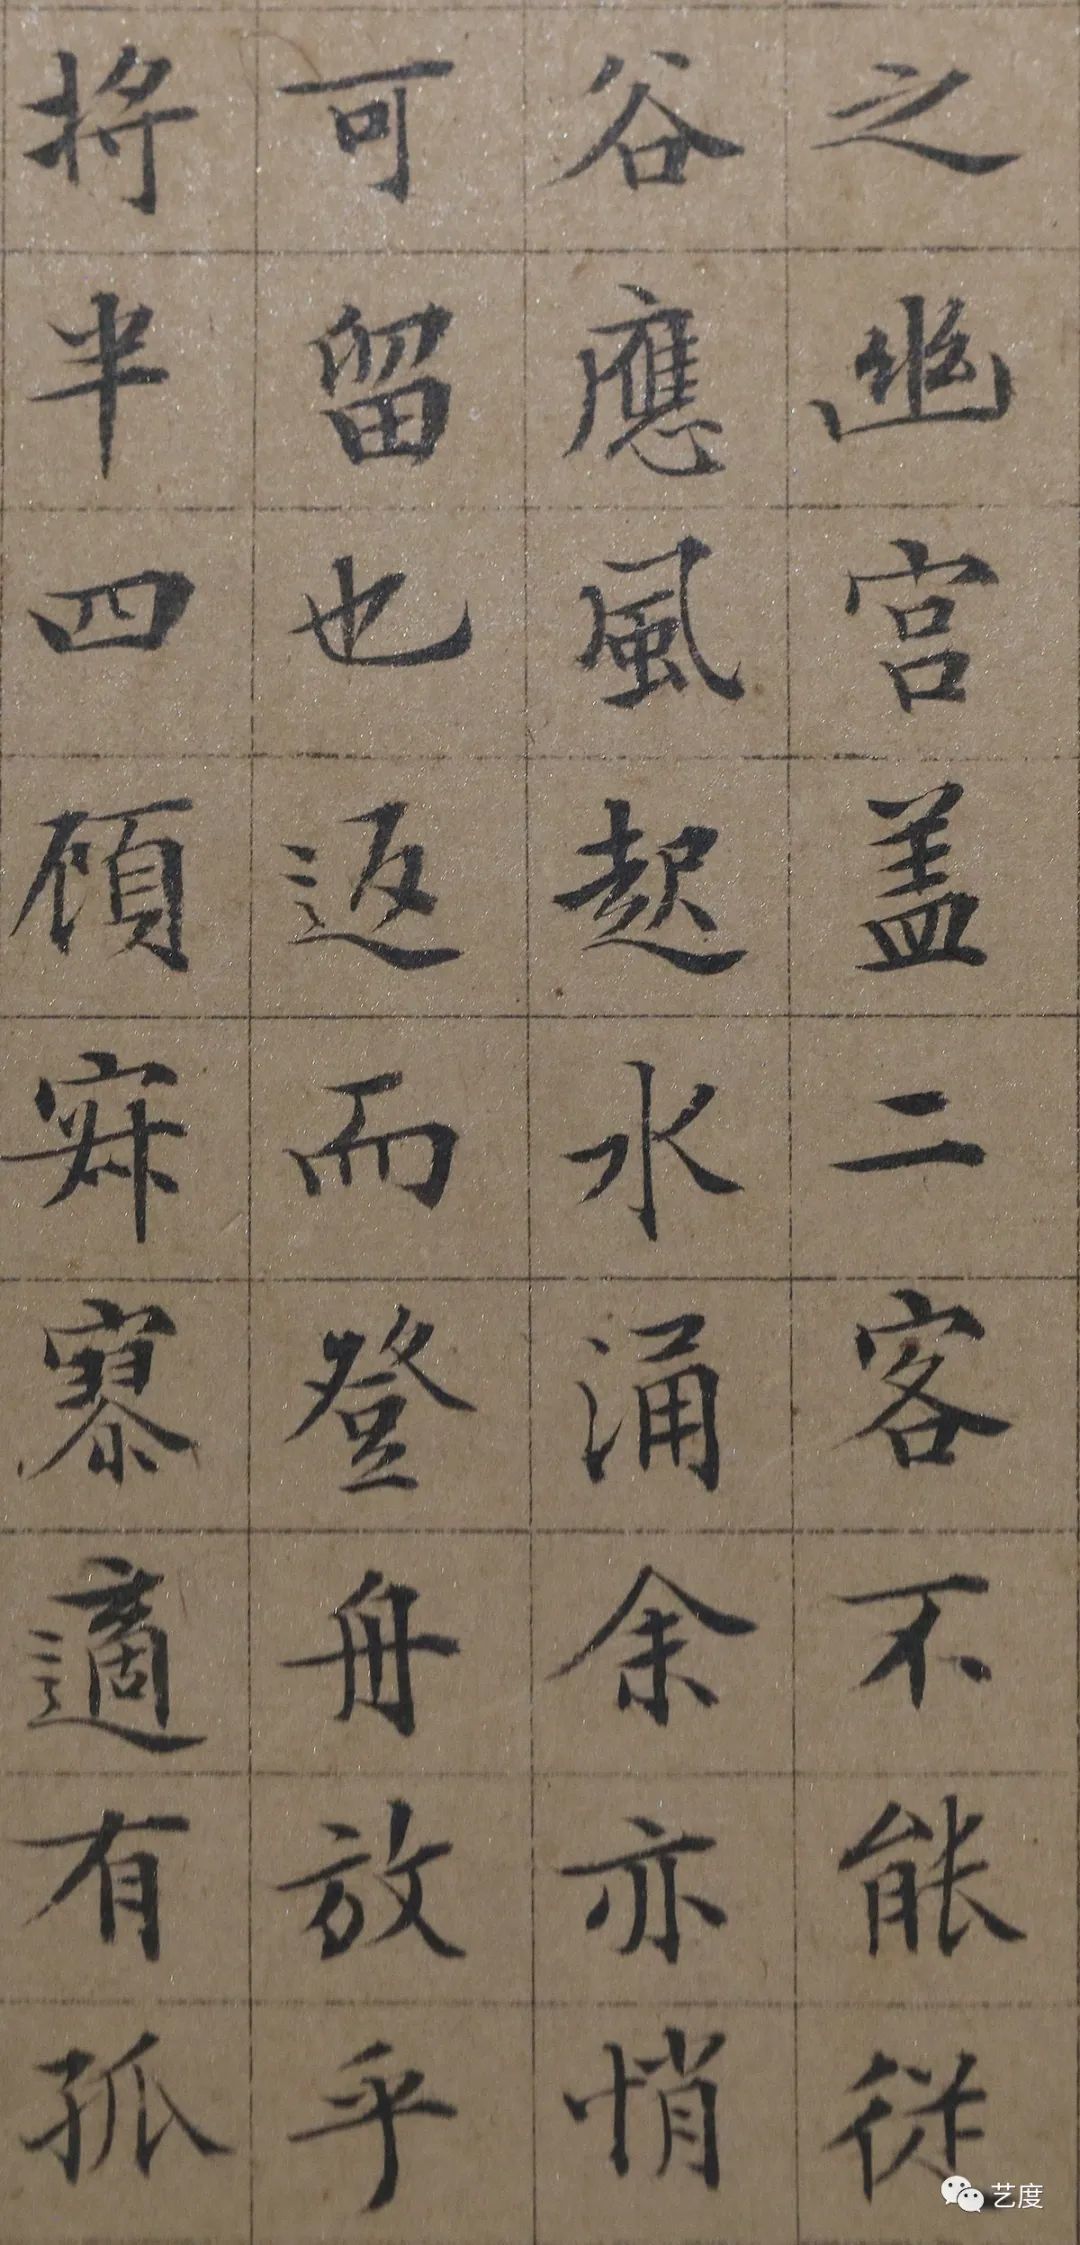 之幽宫盖二客不能從
谷應風起水涌余亦悄
可留也返而登舟放乎
将半四顧寂寥適有孤
艺度